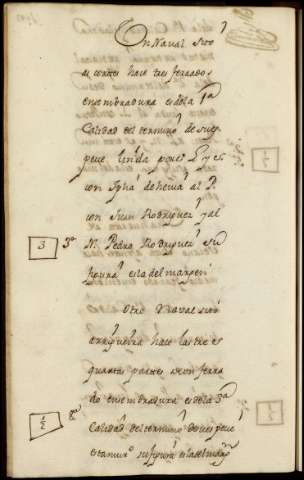 Un Naval sito
al cortes hace tres ferrados
ensembradura es de la 1ª
Calidad del termino de sues
peue linda por el L y es
con Igla de heuia al P.
con Juan Rodriguez y al
3 3ª M. Pedro Rodriguez su
figura es la del margen
Otro Naval sito
hace las tres
quartas partes de un ferra
do ensembradura es de la 3ª
Calidad del termino
su figura es la del margn